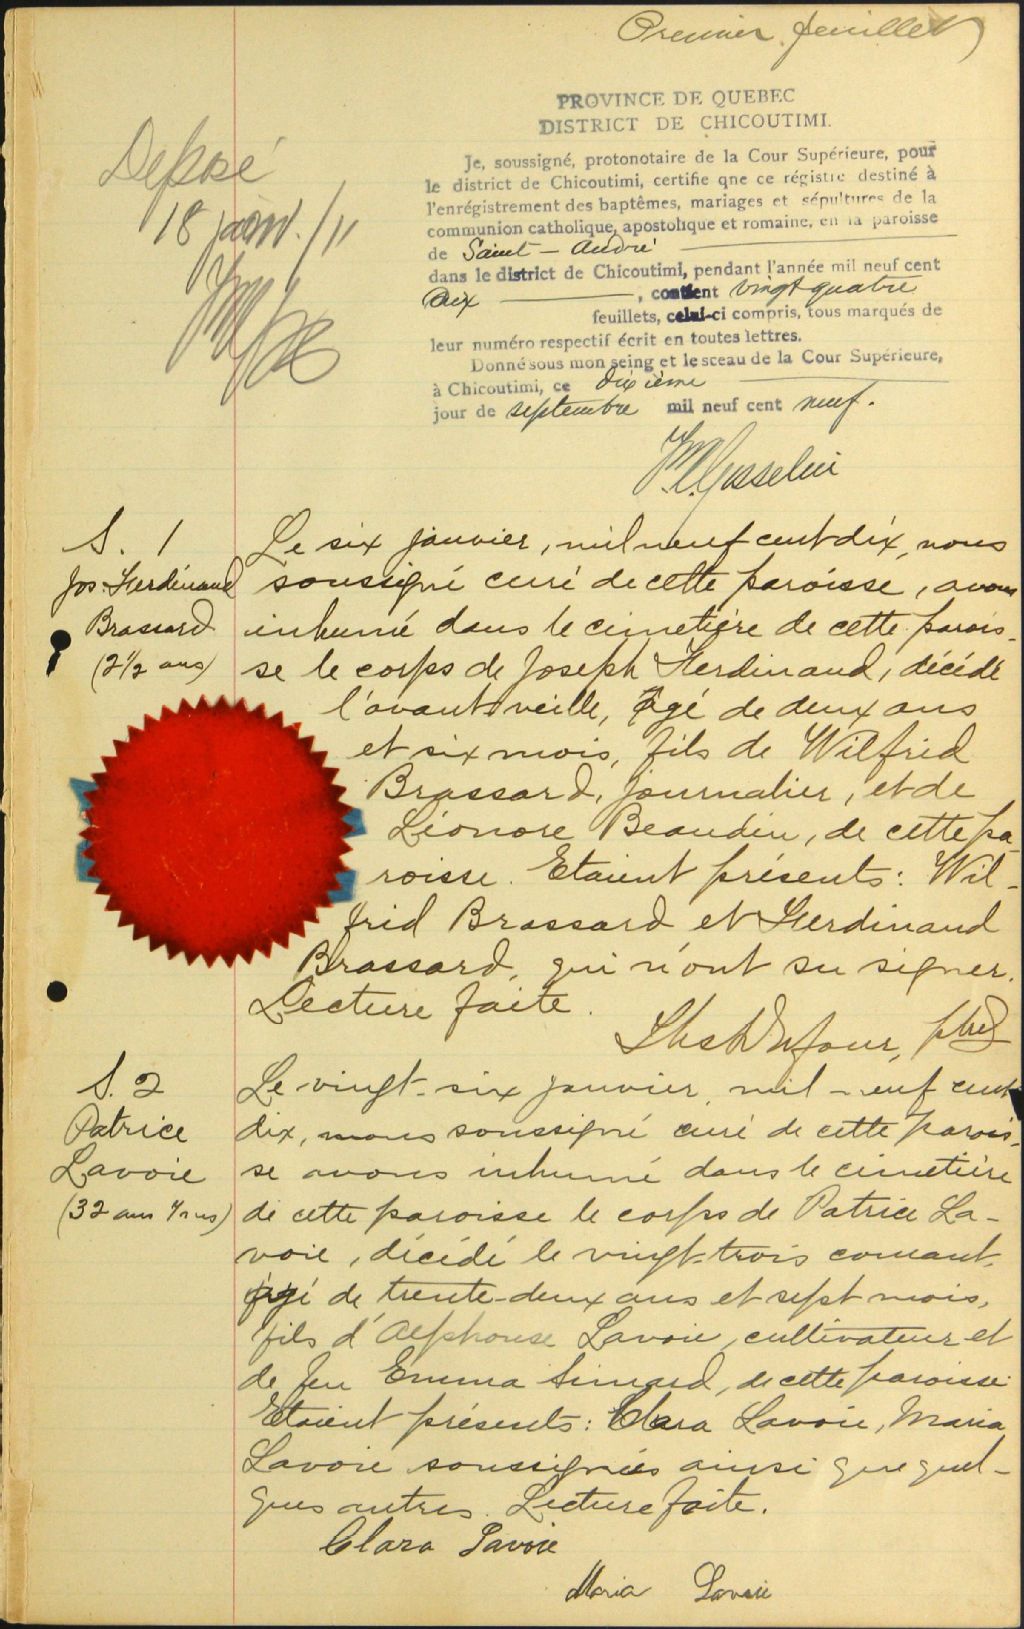 Premier feuillet
PROVINCE DE QUEBEC
DISTRICT DE CHICOUTIMI.
Je, soussigné, protonotaire de la Cour Supérieure, pour
le district de Chicoutimi, certifie qne ce régistre destiné à
l'enrégistrement des baptêmes, mariages et sépultures de la
communion catholique, apostolique et romaine, en la paroisse
de Saint-André
dans le district de Chicoutimi, pendant l'année mil neuf cent
dix, contient vingt quatre
feuillets, celui-ci compris, tous marqués de
leur numéro respectif écrit en toutes lettres.
Donné sous mon seing et le sceau de la Cour Supérieure,
à Chicoutimi, ce dixième
jour de septembre mil neuf cent neuf.
Gosselin
Déposé
18 janv. /11
S. 1
Jos. Ferdinand
Brassard
(2 1/2 ans)
Le six janvier, mil neuf cent dix, nous
soussigné curé de cette paroisse, avons
inhumé dans le cimetière de cette parois-
se le corps de Joseph Ferdinand, décédé
l'avant-veille, âgé de deux ans
et six mois, fils de Wilfrid
Brassard, journalier, et de
Léonore Beaudin, de cette pa-
roisse. Etaient présents: Wil-
frid Brassard et Ferdinand
Brassard, qui n'ont su signer.
Lecture faite.
Dufour, ptre
S. 2
Patrice
Lavoie
(32 ans 7 ms)
Le vingt-six janvier, mil-neuf cent
dix, nous soussigné curé de cette parois-
se avons inhumé dans le cimetière
de cette paroisse le corps de Patrice La-
voie, décédé le vingt-trois courant,
âgé de trente-deux ans et sept mois,
fils d'Alphonse Lavoie, cultivateur et
de feu Emma Simard, de cette paroisse.
Etaient présents: Clara Lavoie, Maria
Lavoie soussignées ainsi que quel-
ques autres. Lecture faite.
Clara Lavoie
Maria Lavoie